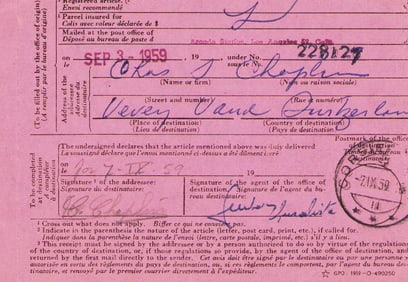 Registered article.
Envoi recommandé
Parcel insured for
Colis avec valeur déclarée de $
Mailed at the post office of
Déposé au bureau de poste d
Arcade Station, Los Angeles 52, Calif.
on
le
SEP 3 - 1959
under No.
sous le No
228127
(To be filled out by the office of origin)
(A remplir par le bureau d'origine)
Address of the addressee
Adresse du destinataire
Chas S Chaplin
(Name or firm)
(Nom ou raison sociale)
(Street and number)
(Rue et numéro)
Vevey Vaud Switzerland
(Place of destination)
(Lieu de destination)
(Country of destination)
(Pays de destination)
Postmark of the office
The undersigned declares that the article mentioned above was duly delivered
Le soussigné déclare que l'envoi mentionné ci-dessus a été dûment livré
on
le
Signature ² of the addressee:
Signature du destinataire:
Signature of the agent of the office of
destination: Signature de l'agent du bureau
destinataire:
To be completed
at destination
(A remplir
à destination)
¹ Cross out what does not apply. Biffer ce qui ne convient pas.
² Indicate in the parenthesis the nature of the article (letter, post card, print, etc.), if called for.
Indiquer dans la parenthèse la nature de l'envoi (lettre, carte postale, imprimé, etc.) s'il y a lieu.
³ This receipt must be signed by the addressee or by a person authorized to do so by virtue of the regulations
of the country of destination, or, if those regulations so provide, by the agent of the office of destination, and
returned by the first mail directly to the sender. Ce avis doit être signé par le destinataire ou par une personne y
autorisée en vertu des règlements du pays de destination, ou, si ces règlements le comportent, par l'agent du bureau
destinataire, et renvoyé par le premier courrier directement à l'expéditeur.
☆ GPO : 1959 — O-490250